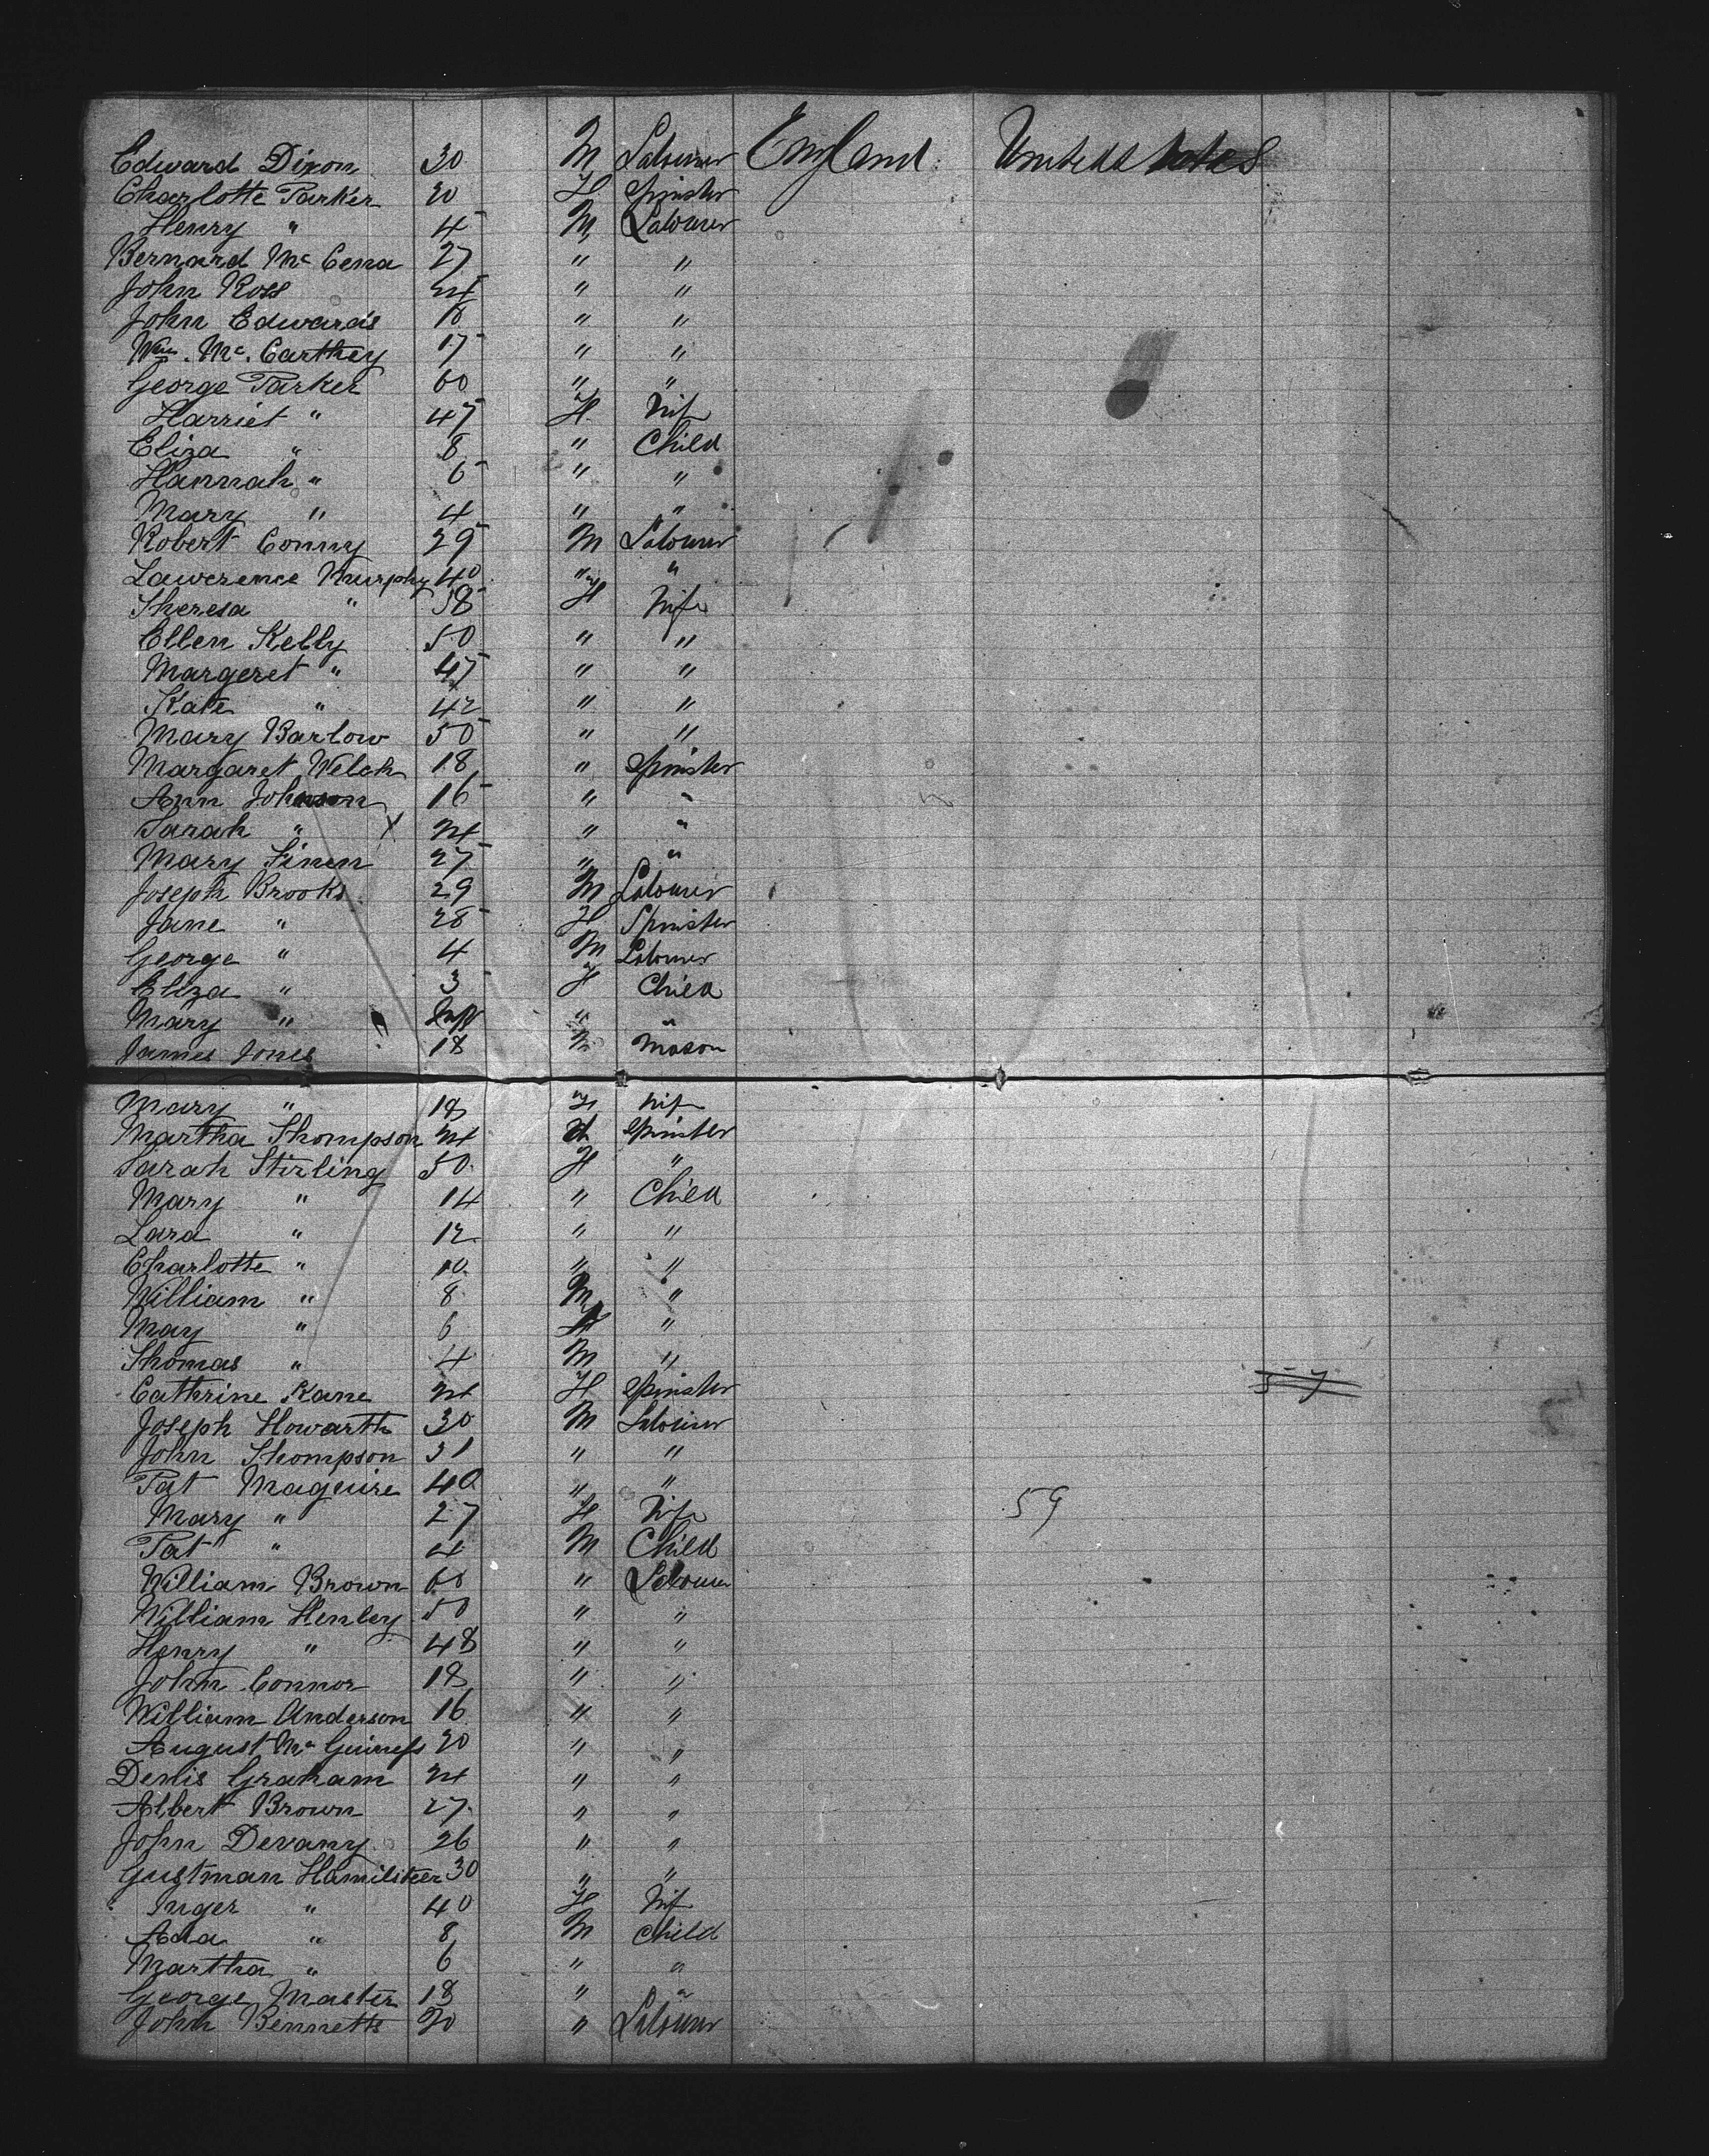 Edward Dixon 30 M Labourer England United States
Charlotte Parker 20 F Spinster
Henry " 45 M Labourer
Bernard Mc Cena 27 " "
John Ross 24 " "
John Edwards 18 " "
Wm. Mc. Carthey 17 " "
George Parker 60 " "
Harriet " 47 F Wife
Eliza " 8 " Child
Hannah " 6 " "
Mary " 4 " "
Robert Conny 29 M Labourer
Lawerence Murphy 40 " "
Theresa " 38 F Wife
Ellen Kelly 50 " "
Margeret " 45 " "
Kate " 42 " "
Mary Barlow 50 " "
Margaret Welch 18 " Spinster
Ann Johnson 16 " "
Sarah " X 24 " "
Mary Finen 27 " "
Joseph Brooks 29 M Labourer
Jane " 28 F Spinster
George " 4 M Labourer
Eliza " 3 F Child
Mary " Inft " "
James Jones 18 M Mason
Mary " 18 F Wife
Martha Thompson 24 Spinster
Sarah Stirling 50 F "
Mary " 14 " Child
Lara " 12 " "
Charlotte " 10 " "
William " 8 M "
May " 6 F "
Thomas " 4 M "
Cathrine Kane 24 F Spinster 57
Joseph Howarth 30 M Labourer
John Thompson 31 " "
Pat Maguire 40 " "
Mary " 27 F Wife 59
Pat " 4 M Child
William Brown 60 " Labourer
William Henley 50 " "
Henry " 48 " "
John Connor 18 " "
William Anderson 16 " "
August Mc Guiness 20 " "
Denis Graham 24 " "
Albert Brown 27 " "
John Devany 26 " "
Gustman Hamilsteer 30 " "
Inger " 40 F Wife
Ada " 8 M Child
Martha " 6 " "
George Master 18 " "
John Bennetts 20 " Labourer